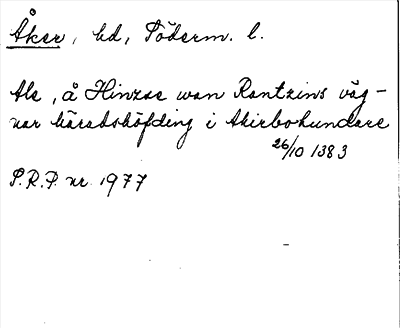 Åker, hd, Söderm. l.
Ale, å Hinzae wan Rantzins väg-
nar häradshöfding i Akirbohundare
26/10 1383
S.R.P. nr. 1977